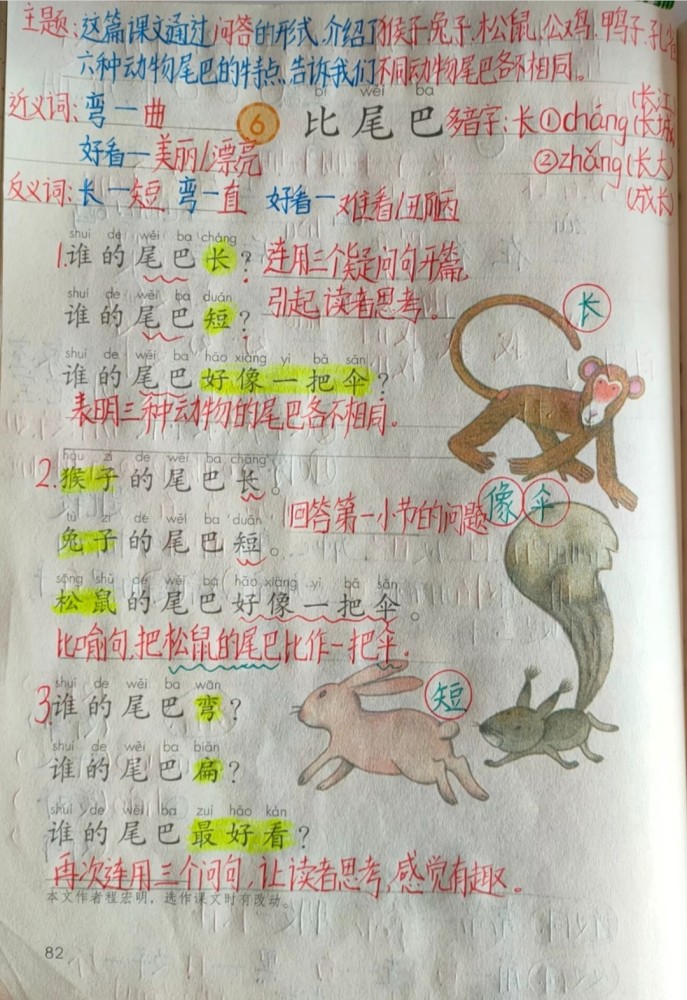 主题:这篇课文通过问答的形式,介绍了猴子、兔子、松鼠、公鸡、鸭子、孔雀
六种动物尾巴的特点,告诉我们不同动物尾巴各不相同。
近义词:弯—曲
好看—美丽/漂亮
反义词:长—短 弯—直 好看—难看/丑陋
bǐ wěi ba
6 比尾巴
多音字:长①cháng(长江)(长城)
②zhǎng(长大)
(成长)
shuí de wěi ba cháng
1.谁的尾巴长?
连用三个疑问句开篇,
引起读者思考。
shuí de wěi ba duǎn
谁的尾巴短?
shuí de wěi ba hǎo xiàng yì bǎ sǎn
谁的尾巴好像一把伞?
表明三种动物的尾巴各不相同。
长
hóu zi de wěi ba cháng
2.猴子的尾巴长。
回答第一小节的问题
像伞
tù zi de wěi ba duǎn
兔子的尾巴短。
sōng shǔ de wěi ba hǎo xiàng yì bǎ sǎn
松鼠的尾巴好像一把伞。
比喻句,把松鼠的尾巴比作一把伞。
短
shuí de wěi ba wān
3.谁的尾巴弯?
shuí de wěi ba biǎn
谁的尾巴扁?
shuí de wěi ba zuì hǎo kàn
谁的尾巴最好看?
再次连用三个问句,让读者思考,感觉有趣。
本文作者程宏明,选作课文时有改动。
82